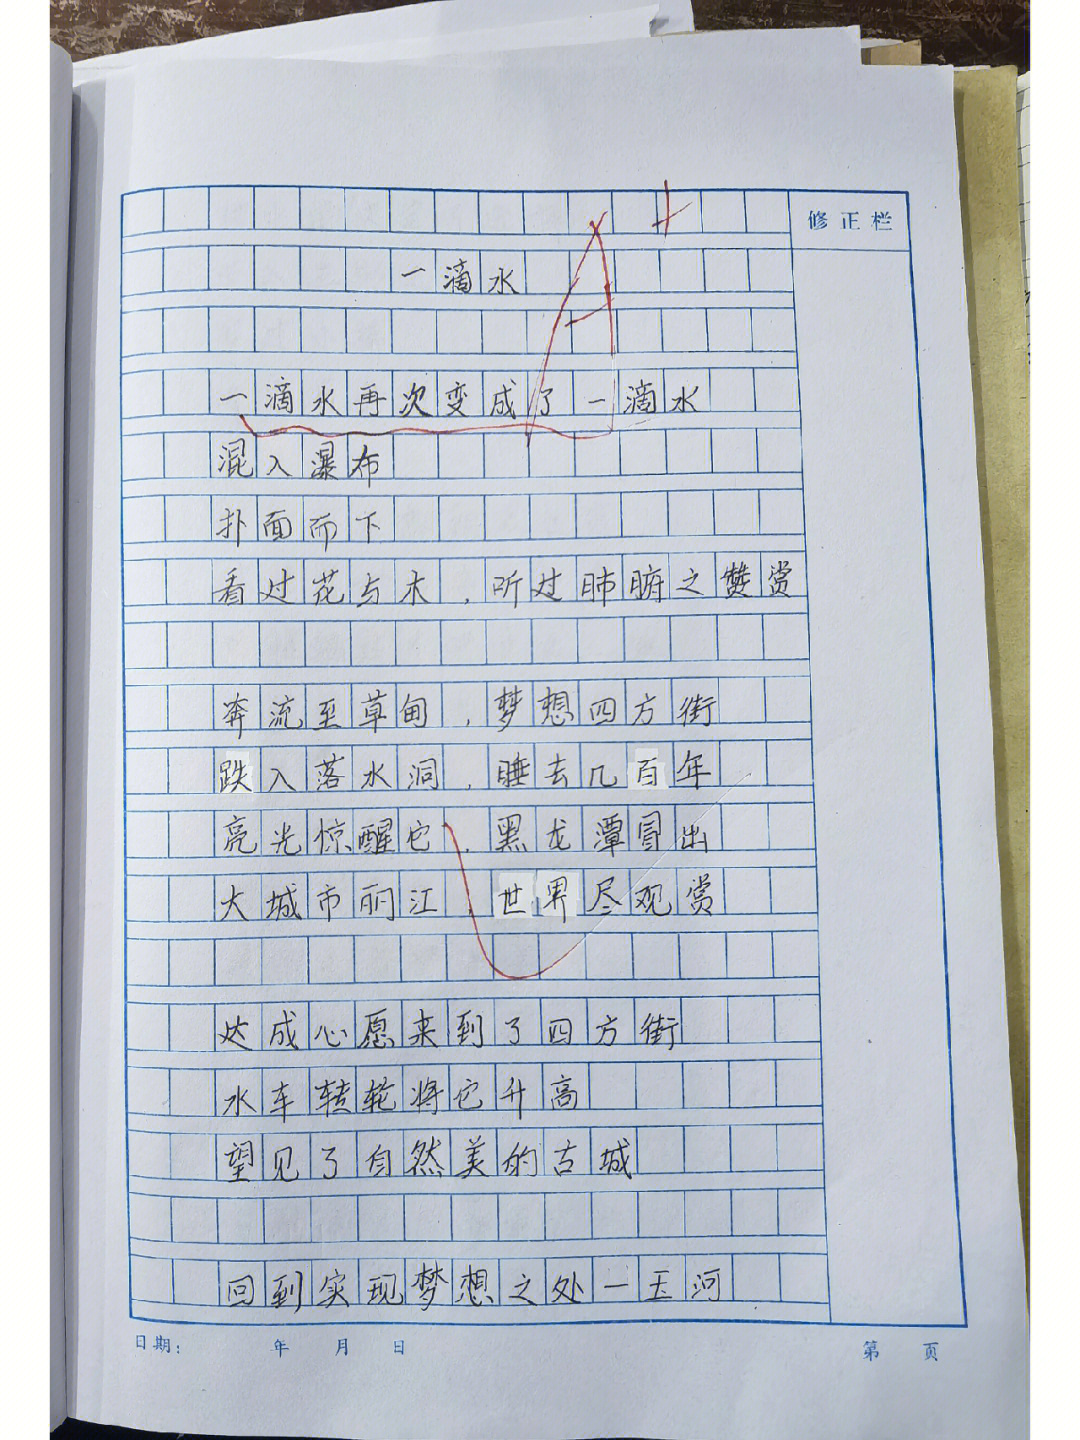 A+
修正栏
一滴水
一滴水再次变成了一滴水
混入瀑布
扑面而下
看过花与木，听过肺腑之赞赏
奔流至草甸，梦想四方街
跌入落水洞，睡去几百年
亮光惊醒它，黑龙潭冒出
大城市丽江，世界尽观赏
达成心愿来到了四方街
水车转轮将它升高
望见了自然美的古城
回到实现梦想之处一玉河
日期： 年 月 日
第 页